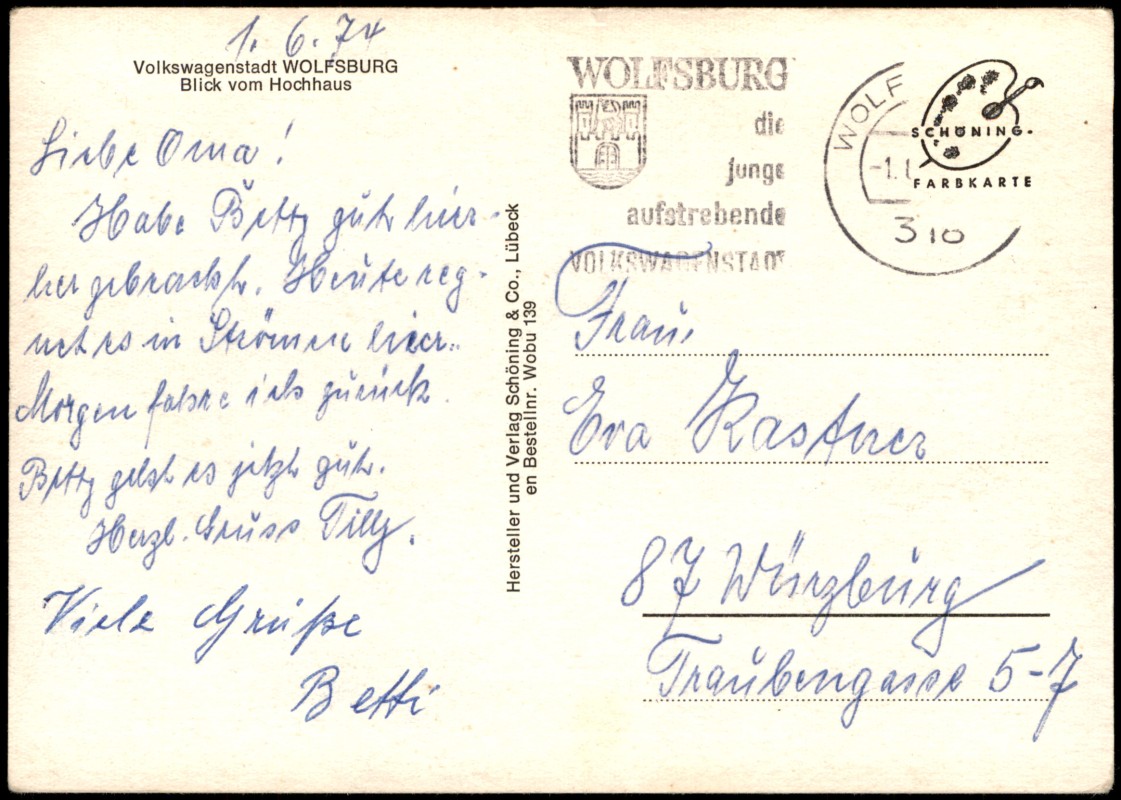 1. 6. 74
Volkswagenstadt WOLFSBURG
Blick vom Hochhaus
Liebe Oma!
Habe Betty gut hier-
her gebracht. Heute reg-
net es in Strömen hier.
Morgen fahre ich zurück.
Betty geht es jetzt gut.
Herzl. Gruss Tilly.
Viele Grüße
Betti
Hersteller und Verlag Schöning & Co., Lübeck
en Bestellnr. Wobu 139
WOLFSBURG
die
junge
aufstrebende
VOLKSWAGENSTADT
WOLF
-1.
318
SCHÖNING-
FARBKARTE
Frau
Eva Kastner
87 Würzburg
Traubengasse 5-7